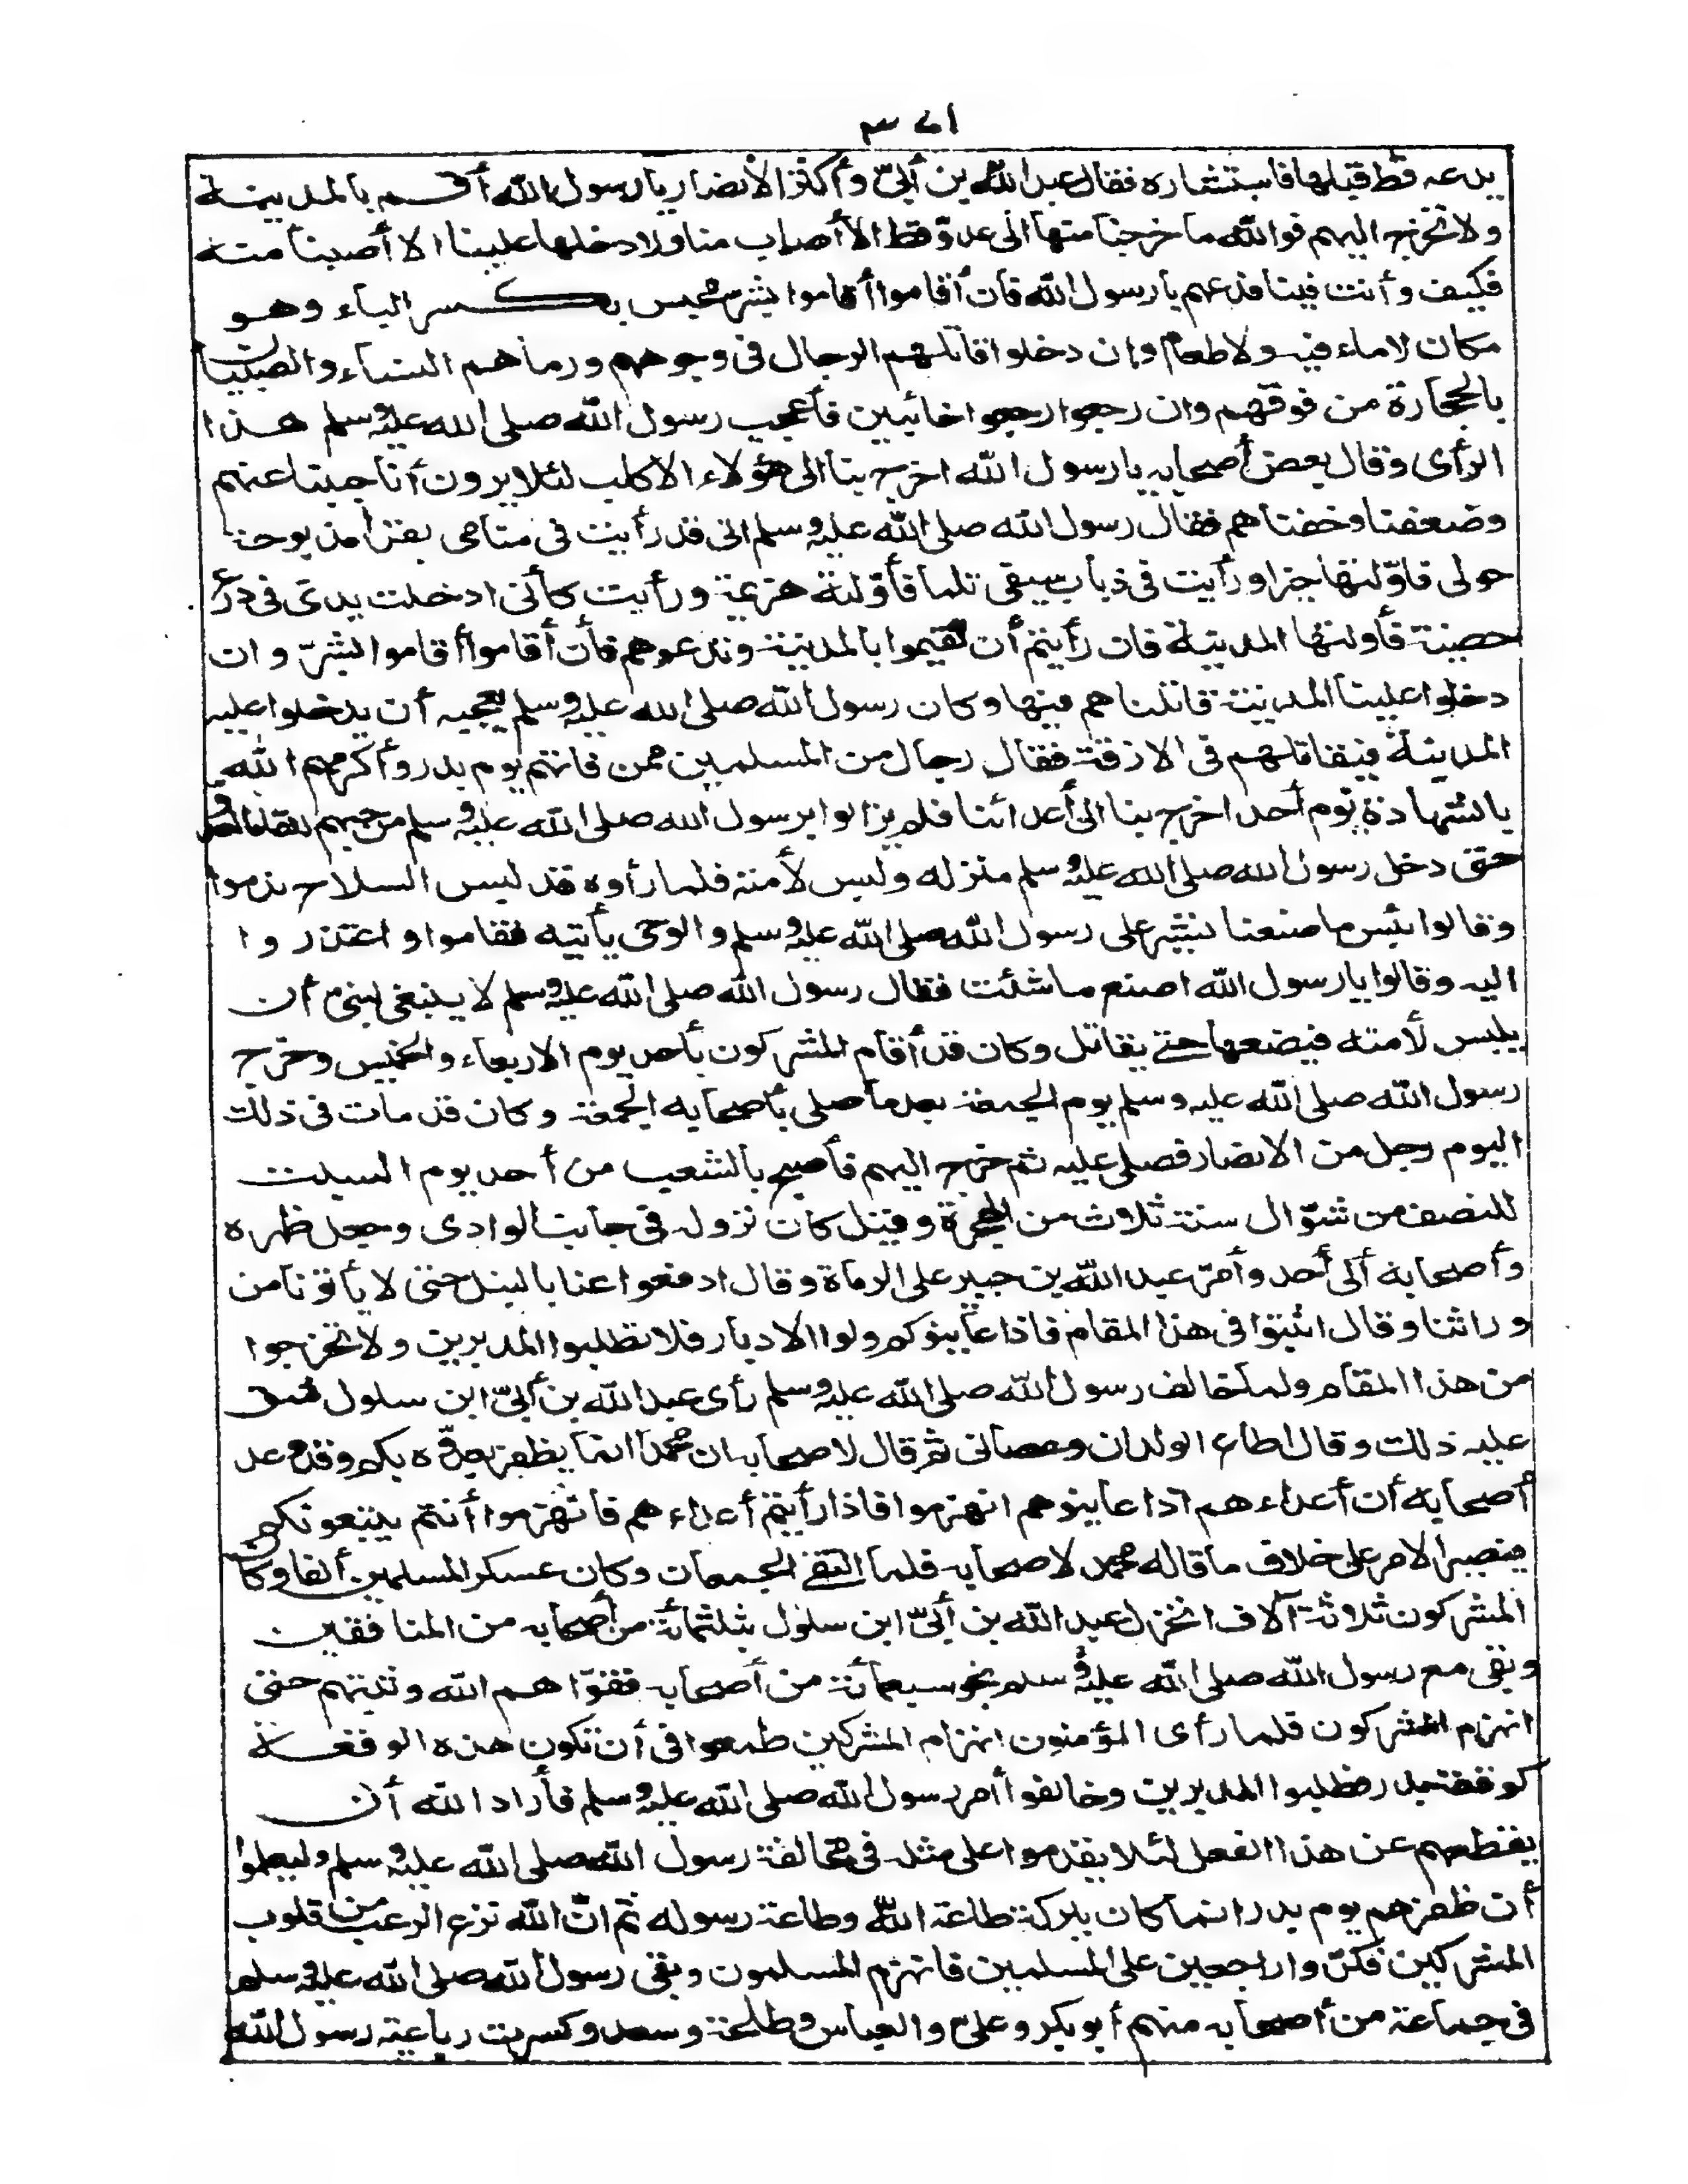 ٣٧١
يدعه قط قبلها فاستشاره فقال عبد الله بن أبيّ وأكثر الأنصار يا رسول الله أقم بالمدينة
ولا تخرج اليهم فوالله ما خرجنا منها الى عدوّ قط الا أصاب منا ولا دخلها علينا الا أصبنا منه
فكيف وأنت فينا فدعهم يا رسول الله فان أقاموا أقاموا بشرّ محبس بكسر الباء وهو
مكان لا ماء فيه ولا طعام وان دخلوا قاتلهم الرجال فى وجوههم ورماهم النساء والصبيان
بالحجارة من فوقهم وان رجعوا رجعوا خائبين فأعجب رسول الله صلى الله عليه وسلم هذا
الرأى وقال بعض أصحابه يا رسول الله اخرج بنا الى هؤلاء الاكلب لئلا يرون أنا جبنا عنهم
وضعفنا وخفناهم فقال رسول الله صلى الله عليه وسلم انى قد رأيت فى منامى بقرا مذبوحة
حولى فاوّلتها خيرا ورأيت فى ذباب سيفى ثلما فأوّلته هزيمة ورأيت كأنى ادخلت يدى فى درع
حصينة فأولتها المدينة فان رأيتم أن تقيموا بالمدينة وتدعوهم فأن أقاموا أقاموا بشرّ وان
دخلوا علينا المدينة قاتلناهم فيها وكان رسول الله صلى الله عليه وسلم يعجبه أن يدخلوا عليه
المدينة فيقاتلهم فى الازقة فقال رجال من المسلمين ممن فاتهم يوم بدر وأكرمهم الله
بالشهادة يوم أحد اخرج بنا الى أعدائنا فلم يزالوا برسول الله صلى الله عليه وسلم من حبهم للقاء العدوّ
حتى دخل رسول الله صلى الله عليه وسلم منزله ولبس لأمته فلما رأوه قد لبس السلاح ندموا
وقالوا بئس ما صنعنا نشير على رسول الله صلى الله عليه وسلم والوحى يأتيه فقاموا واعتذروا
اليه وقالوا يا رسول الله اصنع ما شئت فقال رسول الله صلى الله عليه وسلم لا ينبغى لنبىّ أن
يلبس لأمته فيضعها حتى يقاتل وكان قد أقام المشركون بأحد يوم الاربعاء والخميس وخرج
رسول الله صلى الله عليه وسلم يوم الجمعة بعد ما صلى بأصحابه الجمعة وكان قد مات فى ذلك
اليوم رجل من الانصار فصلى عليه ثم خرج اليهم فأصبح بالشعب من أحد يوم السبت
للنصف من شوّال سنة ثلاث من الهجرة وقيل كان نزوله فى جانب الوادى وجعل ظهره
وأصحابه الى أحد وأمّر عبد الله بن جبير على الرماة وقال ادفعوا عنا بالنبل حتى لا يأتونا من
ورائنا وقال اثبتوا فى هذا المقام فاذا عاينوكم ولوا الادبار فلا تطلبوا المدبرين ولا تخرجوا
من هذا المقام ولما خالف رسول الله صلى الله عليه وسلم رأى عبد الله بن أبىّ ابن سلول شق
عليه ذلك وقال أطاع الولدان وعصانى ثم قال لاصحابه ان محمدا انما يظفر بعدوّه بكم وقد وعد
أصحابه أن أعداءهم اذا عاينوهم انهزموا فاذا رأيتم أعداءهم فانهزموا أنتم يتبعونكم
فيصير الامر على خلاف ما قاله محمد لاصحابه فلما التقى الجمعان وكان عسكر المسلمين ألفا وكان
المشركون ثلاثة آلاف انخزل عبد الله بن أبىّ ابن سلول بثلثمائة من أصحابه من المنافقين
وبقى مع رسول الله صلى الله عليه وسلم نحو سبعمائة من أصحابه فقوّاهم الله وثبتهم حتى
انهزم المشركون فلما رأى المؤمنون انهزام المشركين طمعوا فى أن تكون هذه الوقعة
كوقعة بدر فطلبوا المدبرين وخالفوا أمر رسول الله صلى الله عليه وسلم فأراد الله أن
يفطمهم عن هذا الفعل لئلا يقدموا على مثله فى مخالفة رسول الله صلى الله عليه وسلم وليعلموا
أن ظفرهم يوم بدر انما كان ببركة طاعة الله وطاعة رسوله ثم انّ الله نزع الرعب من قلوب
المشركين فكرّوا راجعين على المسلمين فانهزم المسلمون وبقى رسول الله صلى الله عليه وسلم
فى جماعة من أصحابه منهم أبو بكر وعلىّ والعباس وطلحة وسعد وكسرت رباعية رسول الله